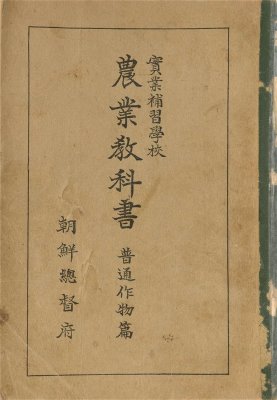 實業補習學校
農業敎科書
普通作物篇
朝鮮總督府